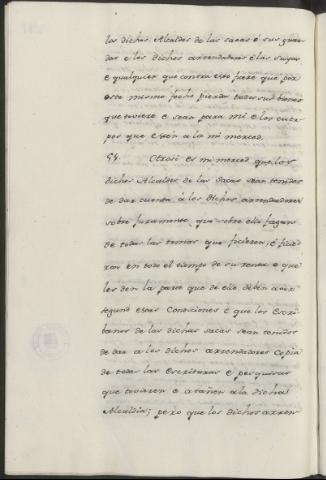 los dichos Alcaldes de las sacas é sus guar
das e los dichos arrendadores é las suyas
e qualquier que contra esto fuere que por
ese mismo fecho pierda todos sus bienes
que tuviere e sean para mi e los cuer
pos que estén a la mi merced.
54. Otrosi es mi merced que los
dichos Alcaldes de las sacas sean tenidos
de dar cuenta á los dichos arrendadores
sobre juramento que sobre ello fagan
de todas las tomas que ficiesen, é ficie
ron en todo el tiempo de su renta e que
les den la parte que de ello deben aver
segund estas Condiciones é que los Escri
banos de las dichas sacas sean tenidos
de dar a los dichos arrendadores copia
de todas las escrituras e pesquisas
que tuvieren e atañen a la dicha
Alcaldia; pero que los dichos arren